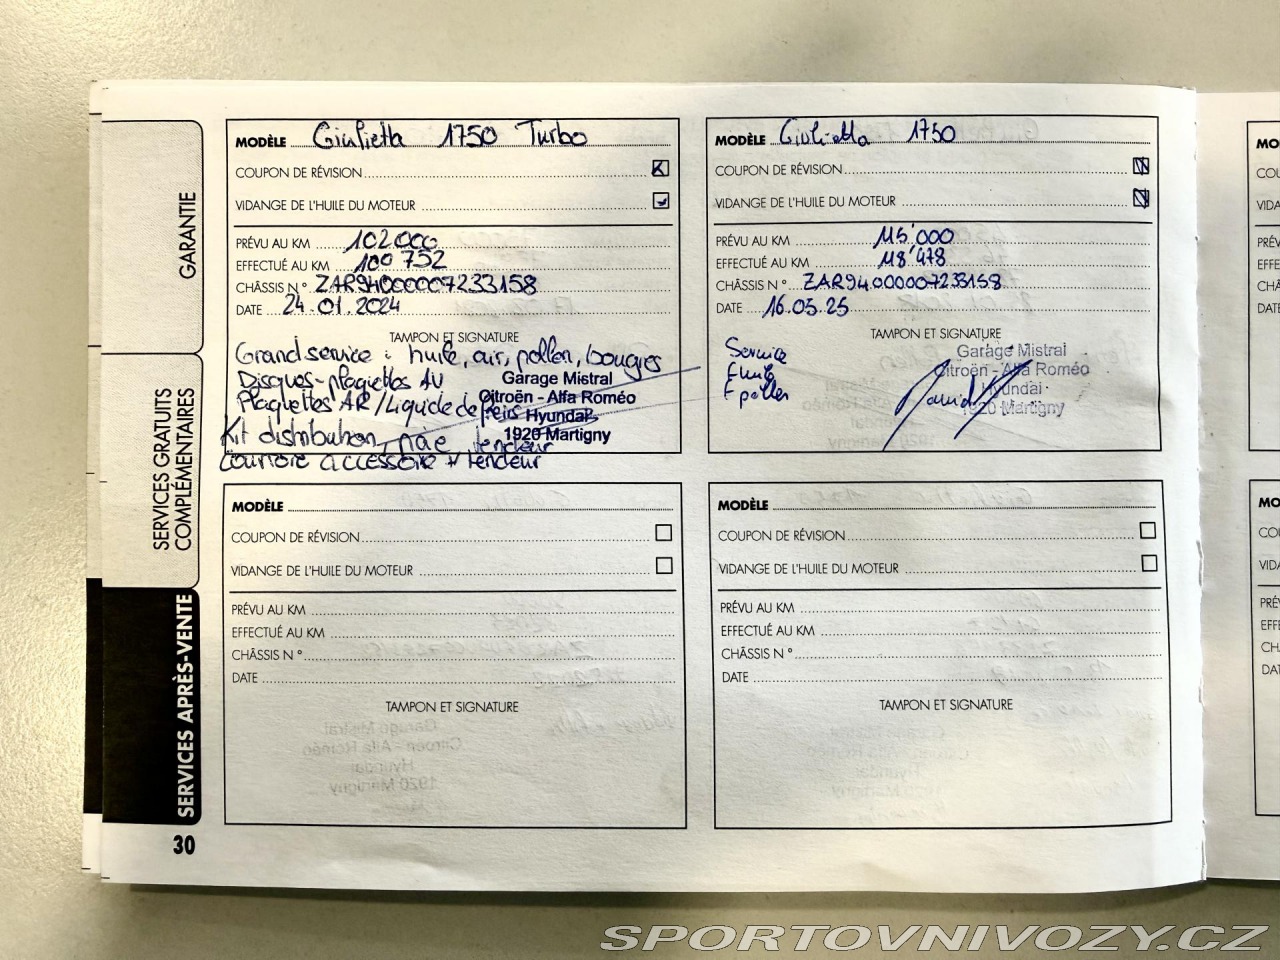 GARANTIE
SERVICES GRATUITS
COMPLÉMENTAIRES
SERVICES APRÈS-VENTE
30
MODÈLE Giulietta 1750 Turbo
COUPON DE RÉVISION
VIDANGE DE L'HUILE DU MOTEUR
PRÉVU AU KM 102000
EFFECTUÉ AU KM 100 752
CHÂSSIS N° ZAR94000007233158
DATE 24.01.2024
TAMPON ET SIGNATURE
Grand service : huile, air, pollen, bougies
Disques-plaquettes AV
Plaquettes AR / Liquide de freins
Kit distribution, tendeur
Courroie accessoire + tendeur
Garage Mistral
Citroën - Alfa Roméo
Hyundai
1920 Martigny
MODÈLE Giulietta 1750
COUPON DE RÉVISION
VIDANGE DE L'HUILE DU MOTEUR
PRÉVU AU KM 115'000
EFFECTUÉ AU KM 118'478
CHÂSSIS N° ZAR94000007233158
DATE 16.05.25
TAMPON ET SIGNATURE
Service
F pollen
Garage Mistral
Citroën - Alfa Roméo
Hyundai
1920 Martigny
MODÈLE
COUPON DE RÉVISION
VIDANGE DE L'HUILE DU MOTEUR
PRÉVU AU KM
EFFECTUÉ AU KM
CHÂSSIS N°
DATE
TAMPON ET SIGNATURE
MODÈLE
COUPON DE RÉVISION
VIDANGE DE L'HUILE DU MOTEUR
PRÉVU AU KM
EFFECTUÉ AU KM
CHÂSSIS N°
DATE
TAMPON ET SIGNATURE
SPORTOVNIVOZY.CZ